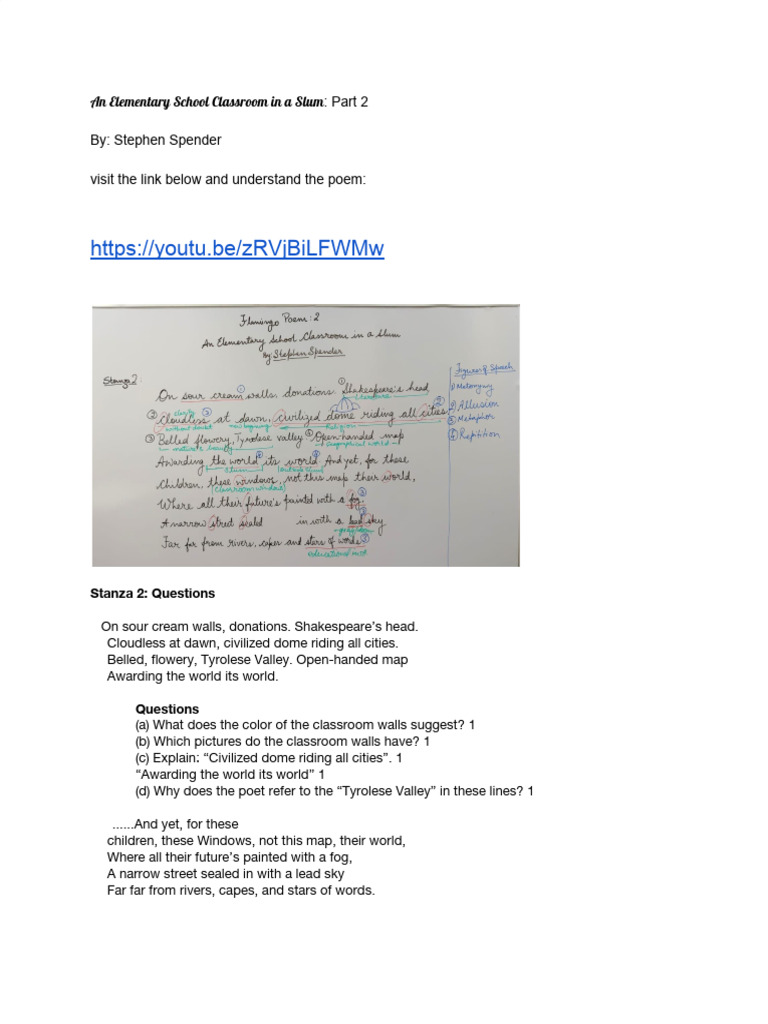 An Elementary School Classroom in a Slum: Part 2
By: Stephen Spender
visit the link below and understand the poem:
https://youtu.be/zRVjBiLFWMw
Flamingo Poem: 2
An Elementary School Classroom in a Slum
By: Stephen Spender
Stanza 2:
Figures of Speech
On sour cream walls, donations. Shakespeare's head
literature
Cloudless at dawn, civilized dome riding all cities
without doubt
Religion
Belled flowery, Tyrolese valley Open-handed map
nature's beauty
Awarding the world its world. And yet, for these
Children, these windows, not this map their world,
classroom windows
Where all their future's painted with a fog,
A narrow street sealed in with a lead sky
Far far from rivers, capes and stars of words
① Metonymy
② Allusion
③ Metaphor
④ Repitition
Stanza 2: Questions
On sour cream walls, donations. Shakespeare’s head.
Cloudless at dawn, civilized dome riding all cities.
Belled, flowery, Tyrolese Valley. Open-handed map
Awarding the world its world.
Questions
(a) What does the color of the classroom walls suggest? 1
(b) Which pictures do the classroom walls have? 1
(c) Explain: “Civilized dome riding all cities”. 1
“Awarding the world its world” 1
(d) Why does the poet refer to the “Tyrolese Valley” in these lines? 1
......And yet, for these
children, these Windows, not this map, their world,
Where all their future’s painted with a fog,
A narrow street sealed in with a lead sky
Far far from rivers, capes, and stars of words.